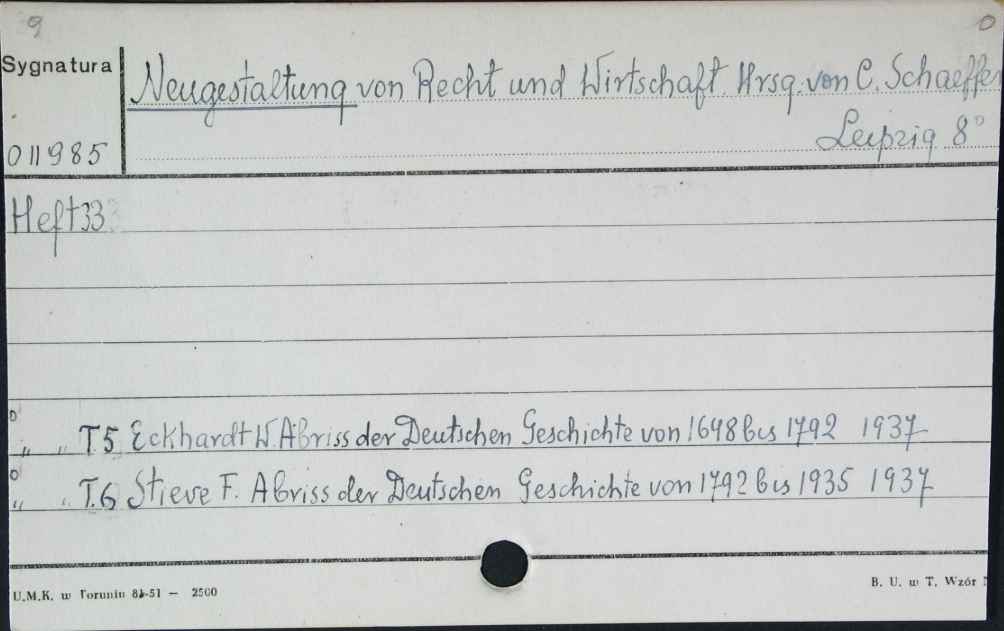 9 0
Sygnatura Neugestaltung von Recht und Wirtschaft. Hrsg. von C. Schaeffer
011985 Leipzig 8°
Heft 33
0
„ „ T.5 Eckhardt W. Abriss der Deutschen Geschichte von 1648 bis 1792 1937
0
„ „ T.6 Stieve F. Abriss der Deutschen Geschichte von 1792 bis 1935 1937
U.M.K. w Toruniu 51 — 2500 B. U. w T. Wzór